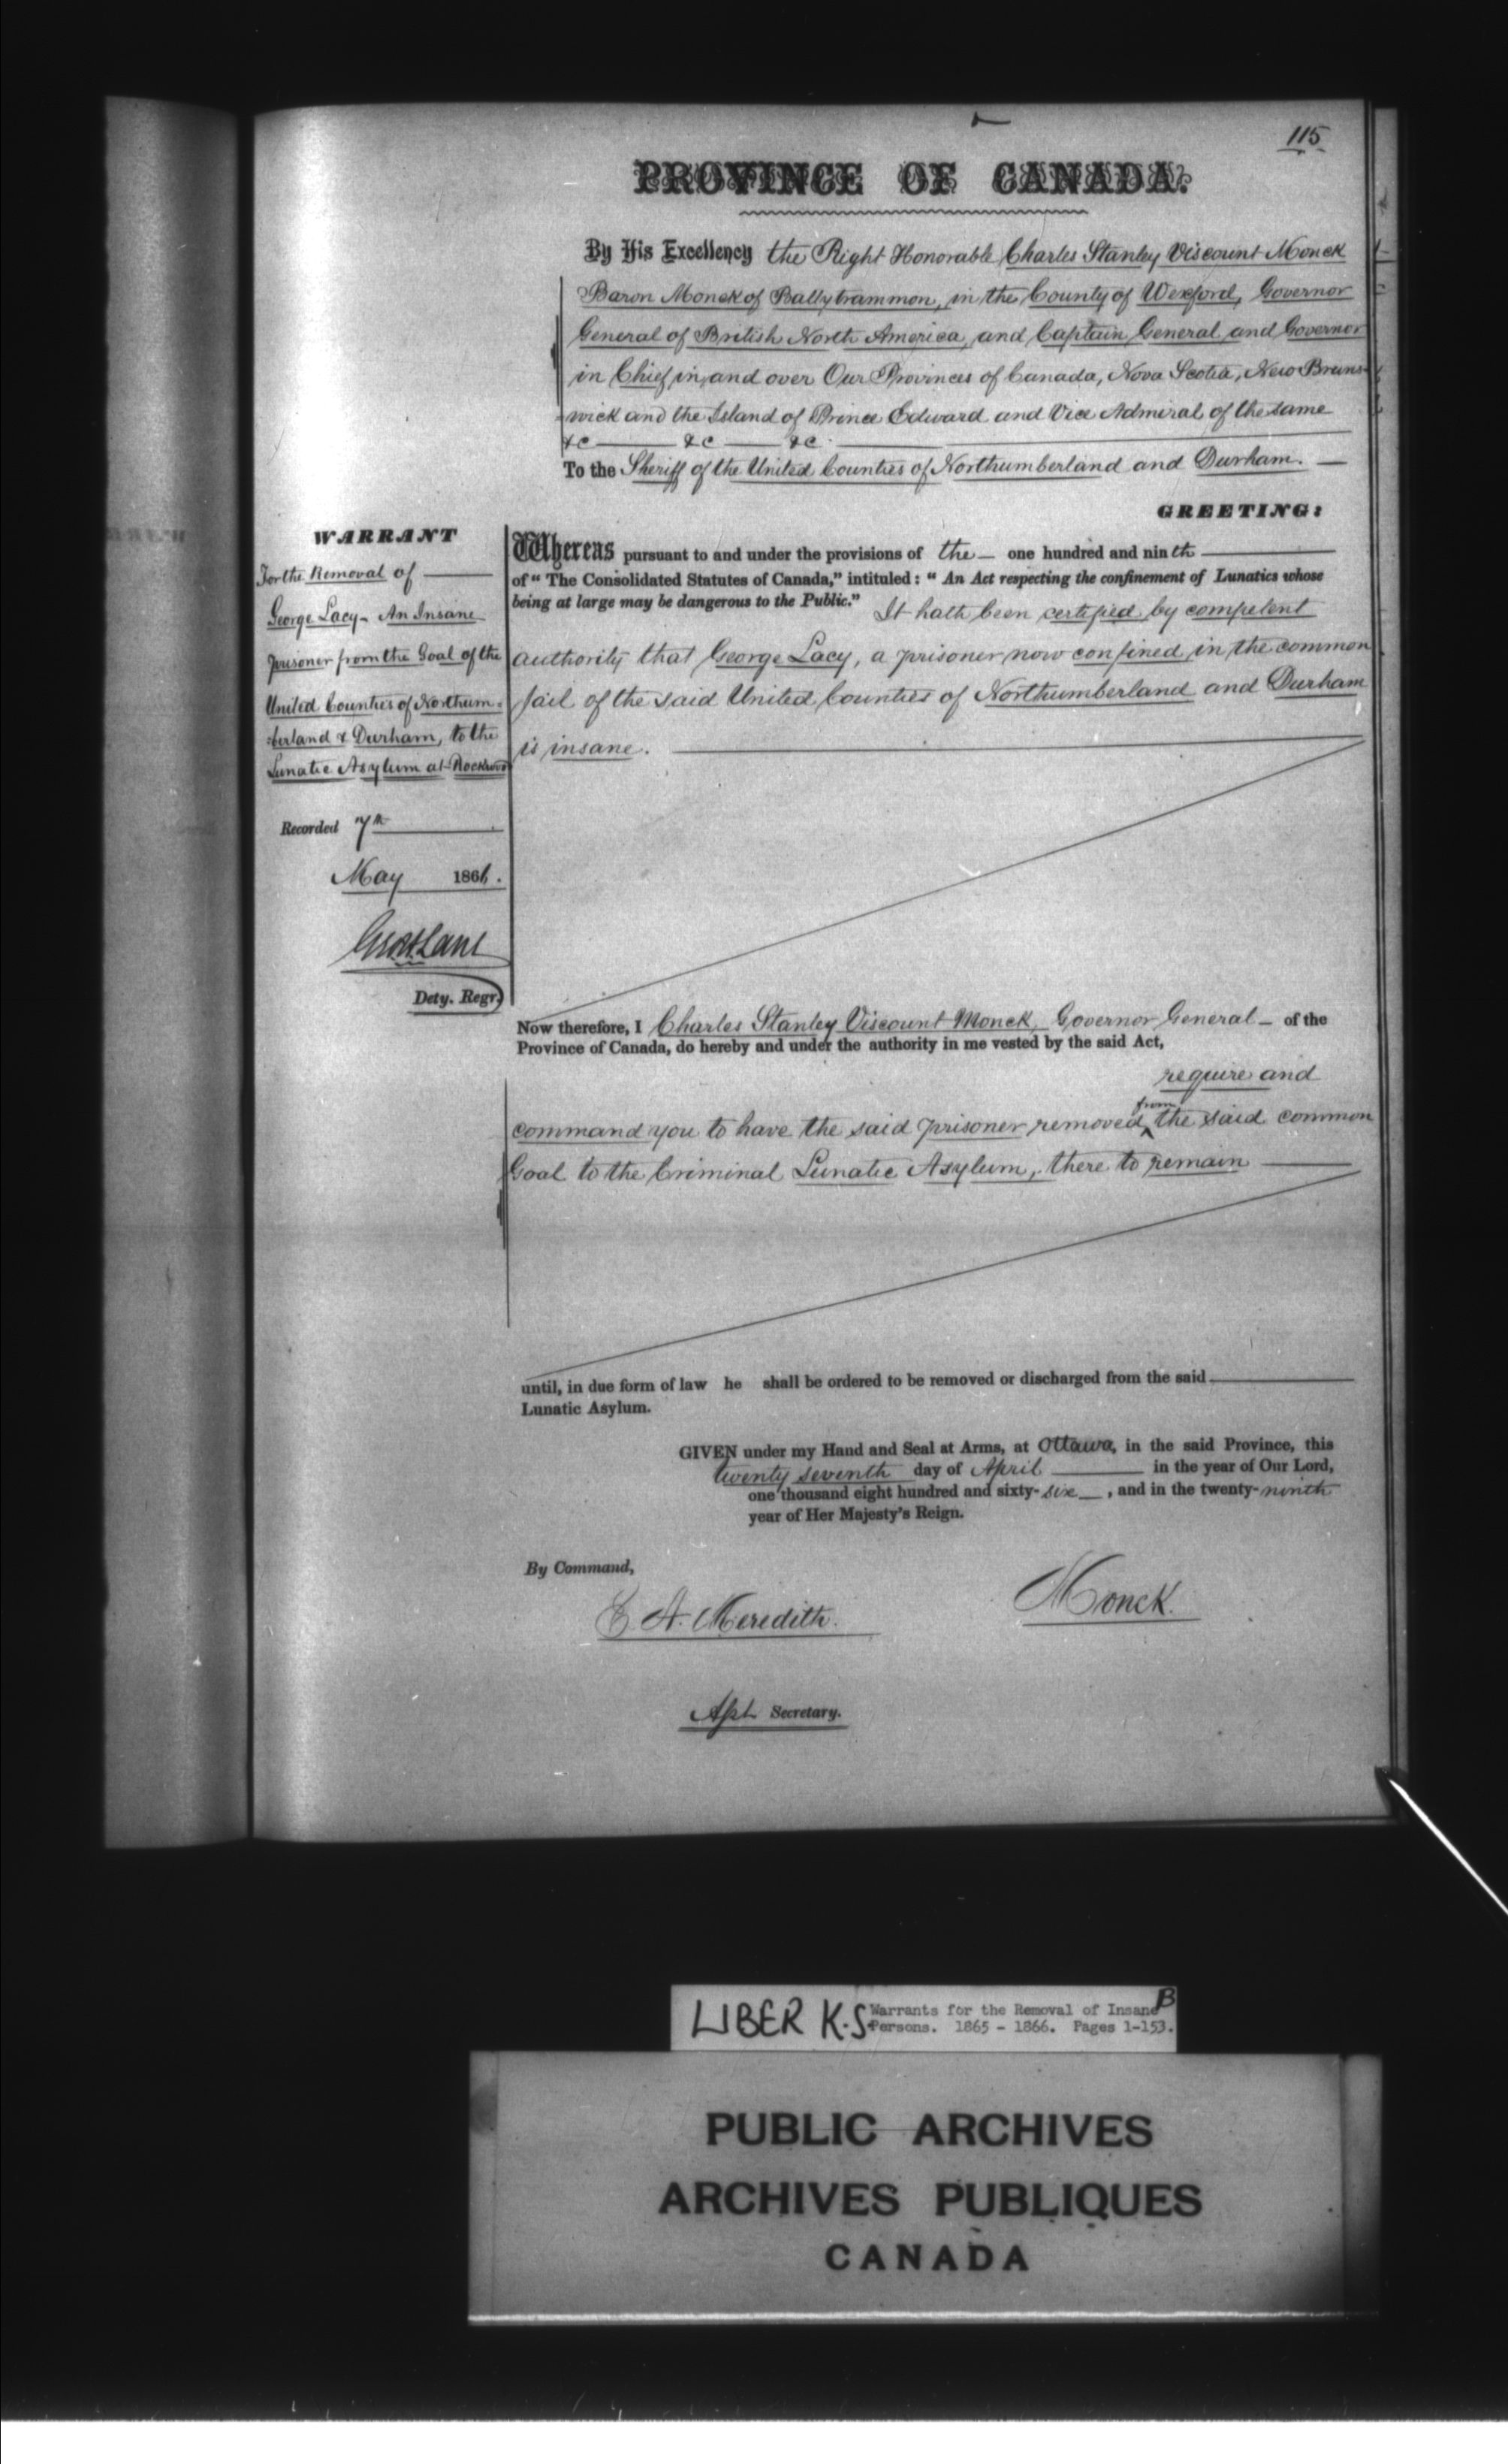 115
PROVINCE OF CANADA.
By His Excellency the Right Honorable Charles Stanley Viscount Monck
Baron Monck of Ballytrammon, in the County of Wexford, Governor
General of British North America, and Captain General and Governor
in Chief in, and over Our Provinces of Canada, Nova Scotia, New Bruns-
wick and the Island of Prince Edward and Vice Admiral of the same
&c &c &c
To the Sheriff of the United Counties of Northumberland and Durham.
GREETING:
WARRANT
For the Removal of
George Lacy - An Insane
prisoner from the Goal of the
United Counties of Northum-
berland & Durham, to the
Lunatic Asylum at Rockwood
Recorded 7th
May 1866.
Dety. Regr.
Whereas pursuant to and under the provisions of the one hundred and ninth
of "The Consolidated Statutes of Canada," intituled: "An Act respecting the confinement of Lunatics whose
being at large may be dangerous to the Public." It hath been certified by competent
authority that George Lacy, a prisoner now confined in the common
Jail of the said United Counties of Northumberland and Durham
is insane.
Now therefore, I Charles Stanley Viscount Monck, Governor General of the
Province of Canada, do hereby and under the authority in me vested by the said Act,
require and
command you to have the said prisoner removed from the said common
Goal to the Criminal Lunatic Asylum, there to remain
until, in due form of law he shall be ordered to be removed or discharged from the said
Lunatic Asylum.
GIVEN under my Hand and Seal at Arms, at Ottawa, in the said Province, this
twenty seventh day of April in the year of Our Lord,
one thousand eight hundred and sixty-six, and in the twenty-ninth
year of Her Majesty's Reign.
By Command,
E. A. Meredith.
Monck.
Asst. Secretary.
LIBER K.S. Warrants for the Removal of Insane B
Persons. 1865 - 1866. Pages 1-153.
PUBLIC ARCHIVES
ARCHIVES PUBLIQUES
CANADA